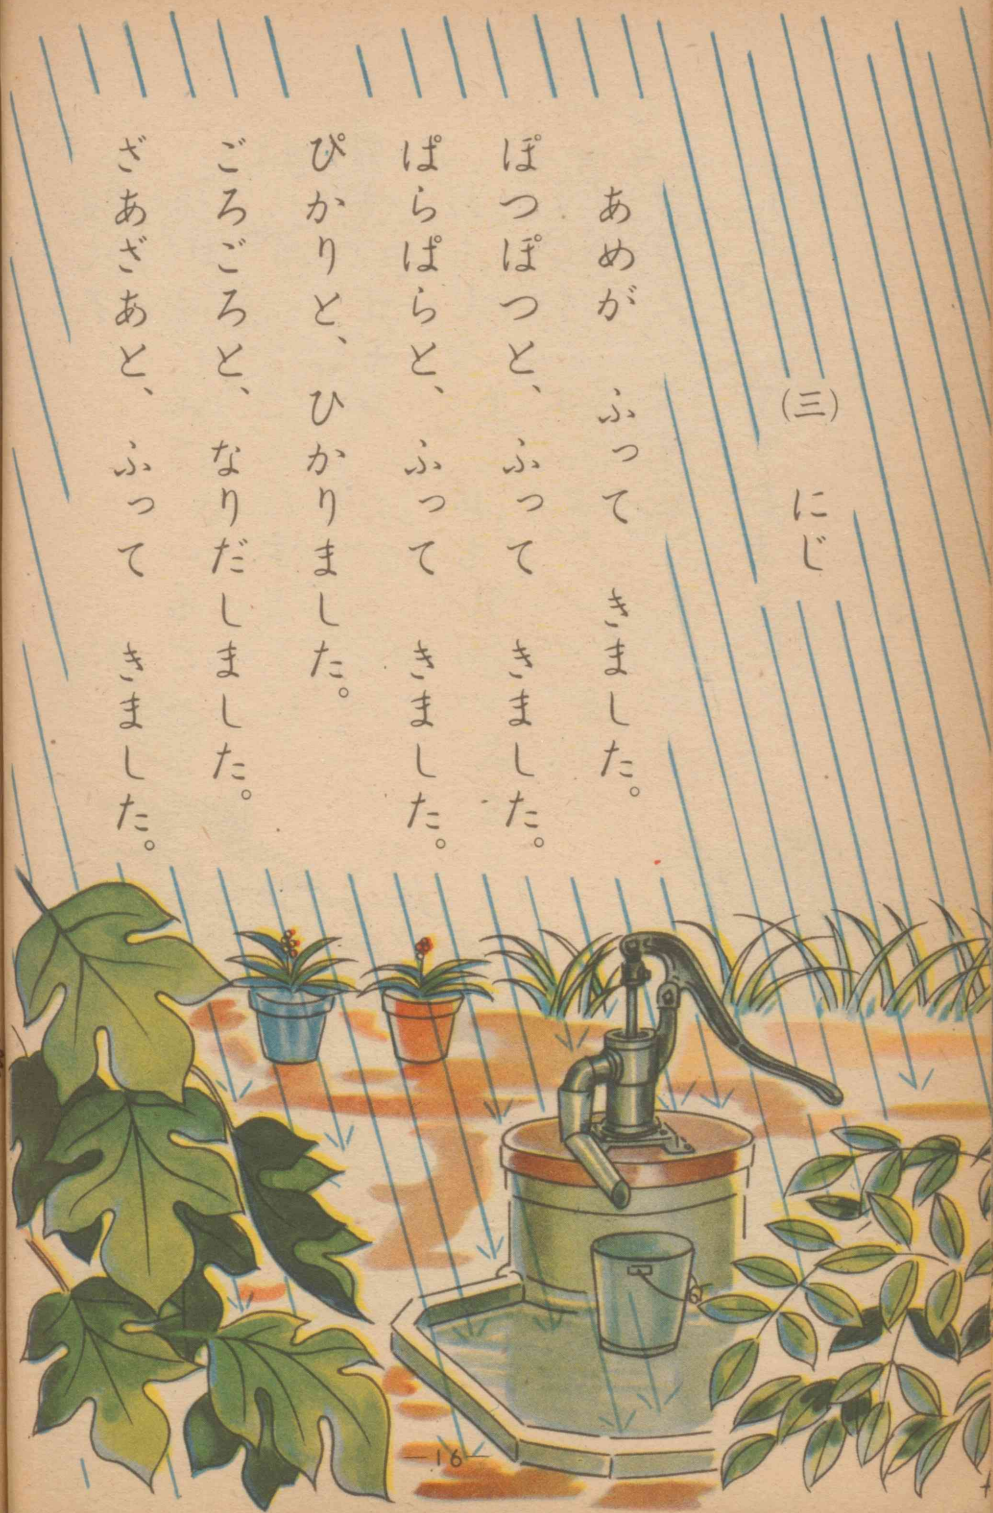 (三) にじ
あめが ふって きました。
ぽつぽつと、ふって きました。
ぱらぱらと、ふって きました。
ぴかりと、ひかりました。
ごろごろと、なりだしました。
ざあざあと、ふって きました。
—16—